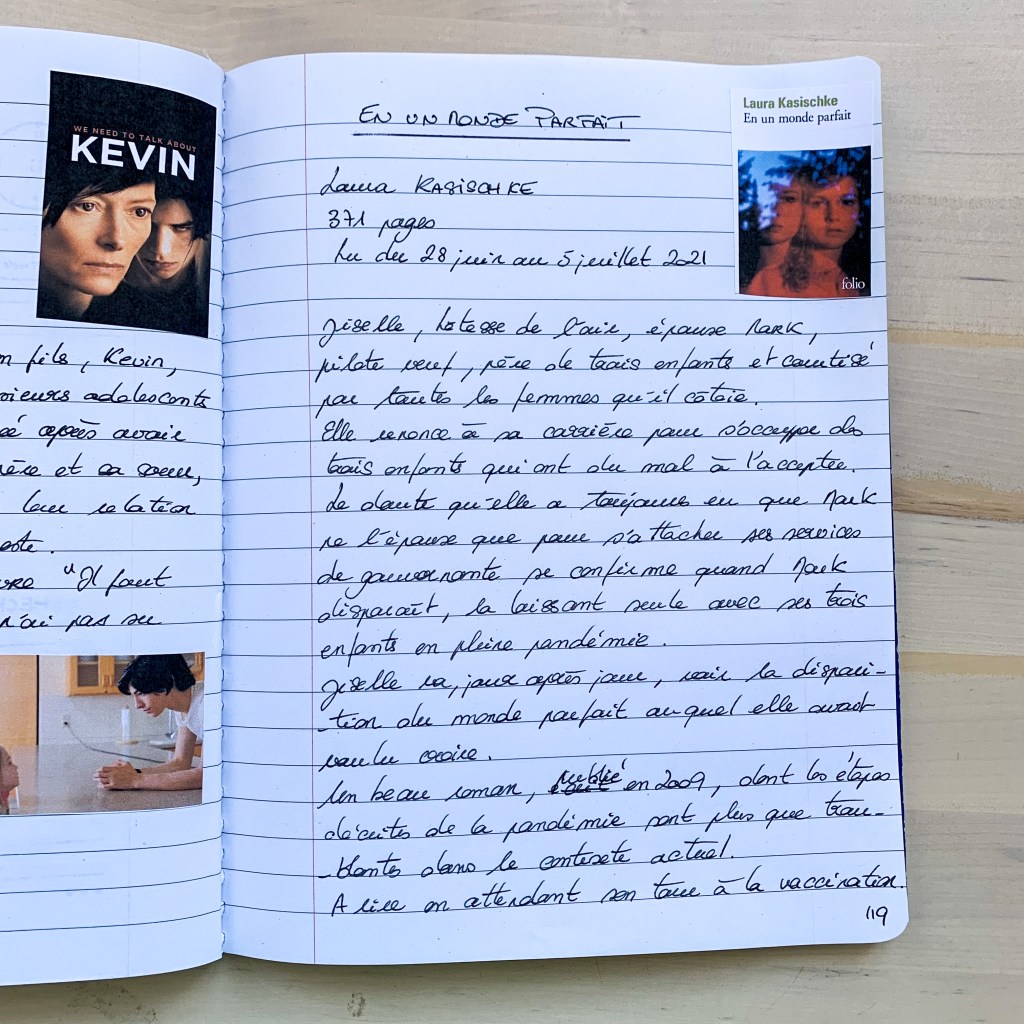 WE NEED TO TALK ABOUT
KEVIN
n fils, Kevin,
sieurs adolescents
é après avoir
ère et sa soeur,
leur relation
este.
vre "Il faut
n'ai pas su
EN UN MONDE PARFAIT
Laura Kasischke
En un monde parfait
folio
Laura KASISCHKE
371 pages
Lu du 28 juin au 5 juillet 2021
Jiselle, hôtesse de l'air, épouse Mark,
pilote veuf, père de trois enfants et courtisé
par toutes les femmes qu'il côtoie.
Elle renonce à sa carrière pour s'occuper des
trois enfants qui ont du mal à l'accepter.
Le doute qu'elle a toujours eu que Mark
ne l'épouse que pour s'attacher ses services
de gouvernante se confirme quand Mark
disparaît, la laissant seule avec ses trois
enfants en pleine pandémie.
Jiselle va, jour après jour, voir la dispari-
-tion du monde parfait auquel elle avait
voulu croire.
Un beau roman, publié en 2009, dont les étapes
décrites de la pandémie sont plus que trou-
-blantes dans le contexte actuel.
A lire en attendant son tour à la vaccination.
119